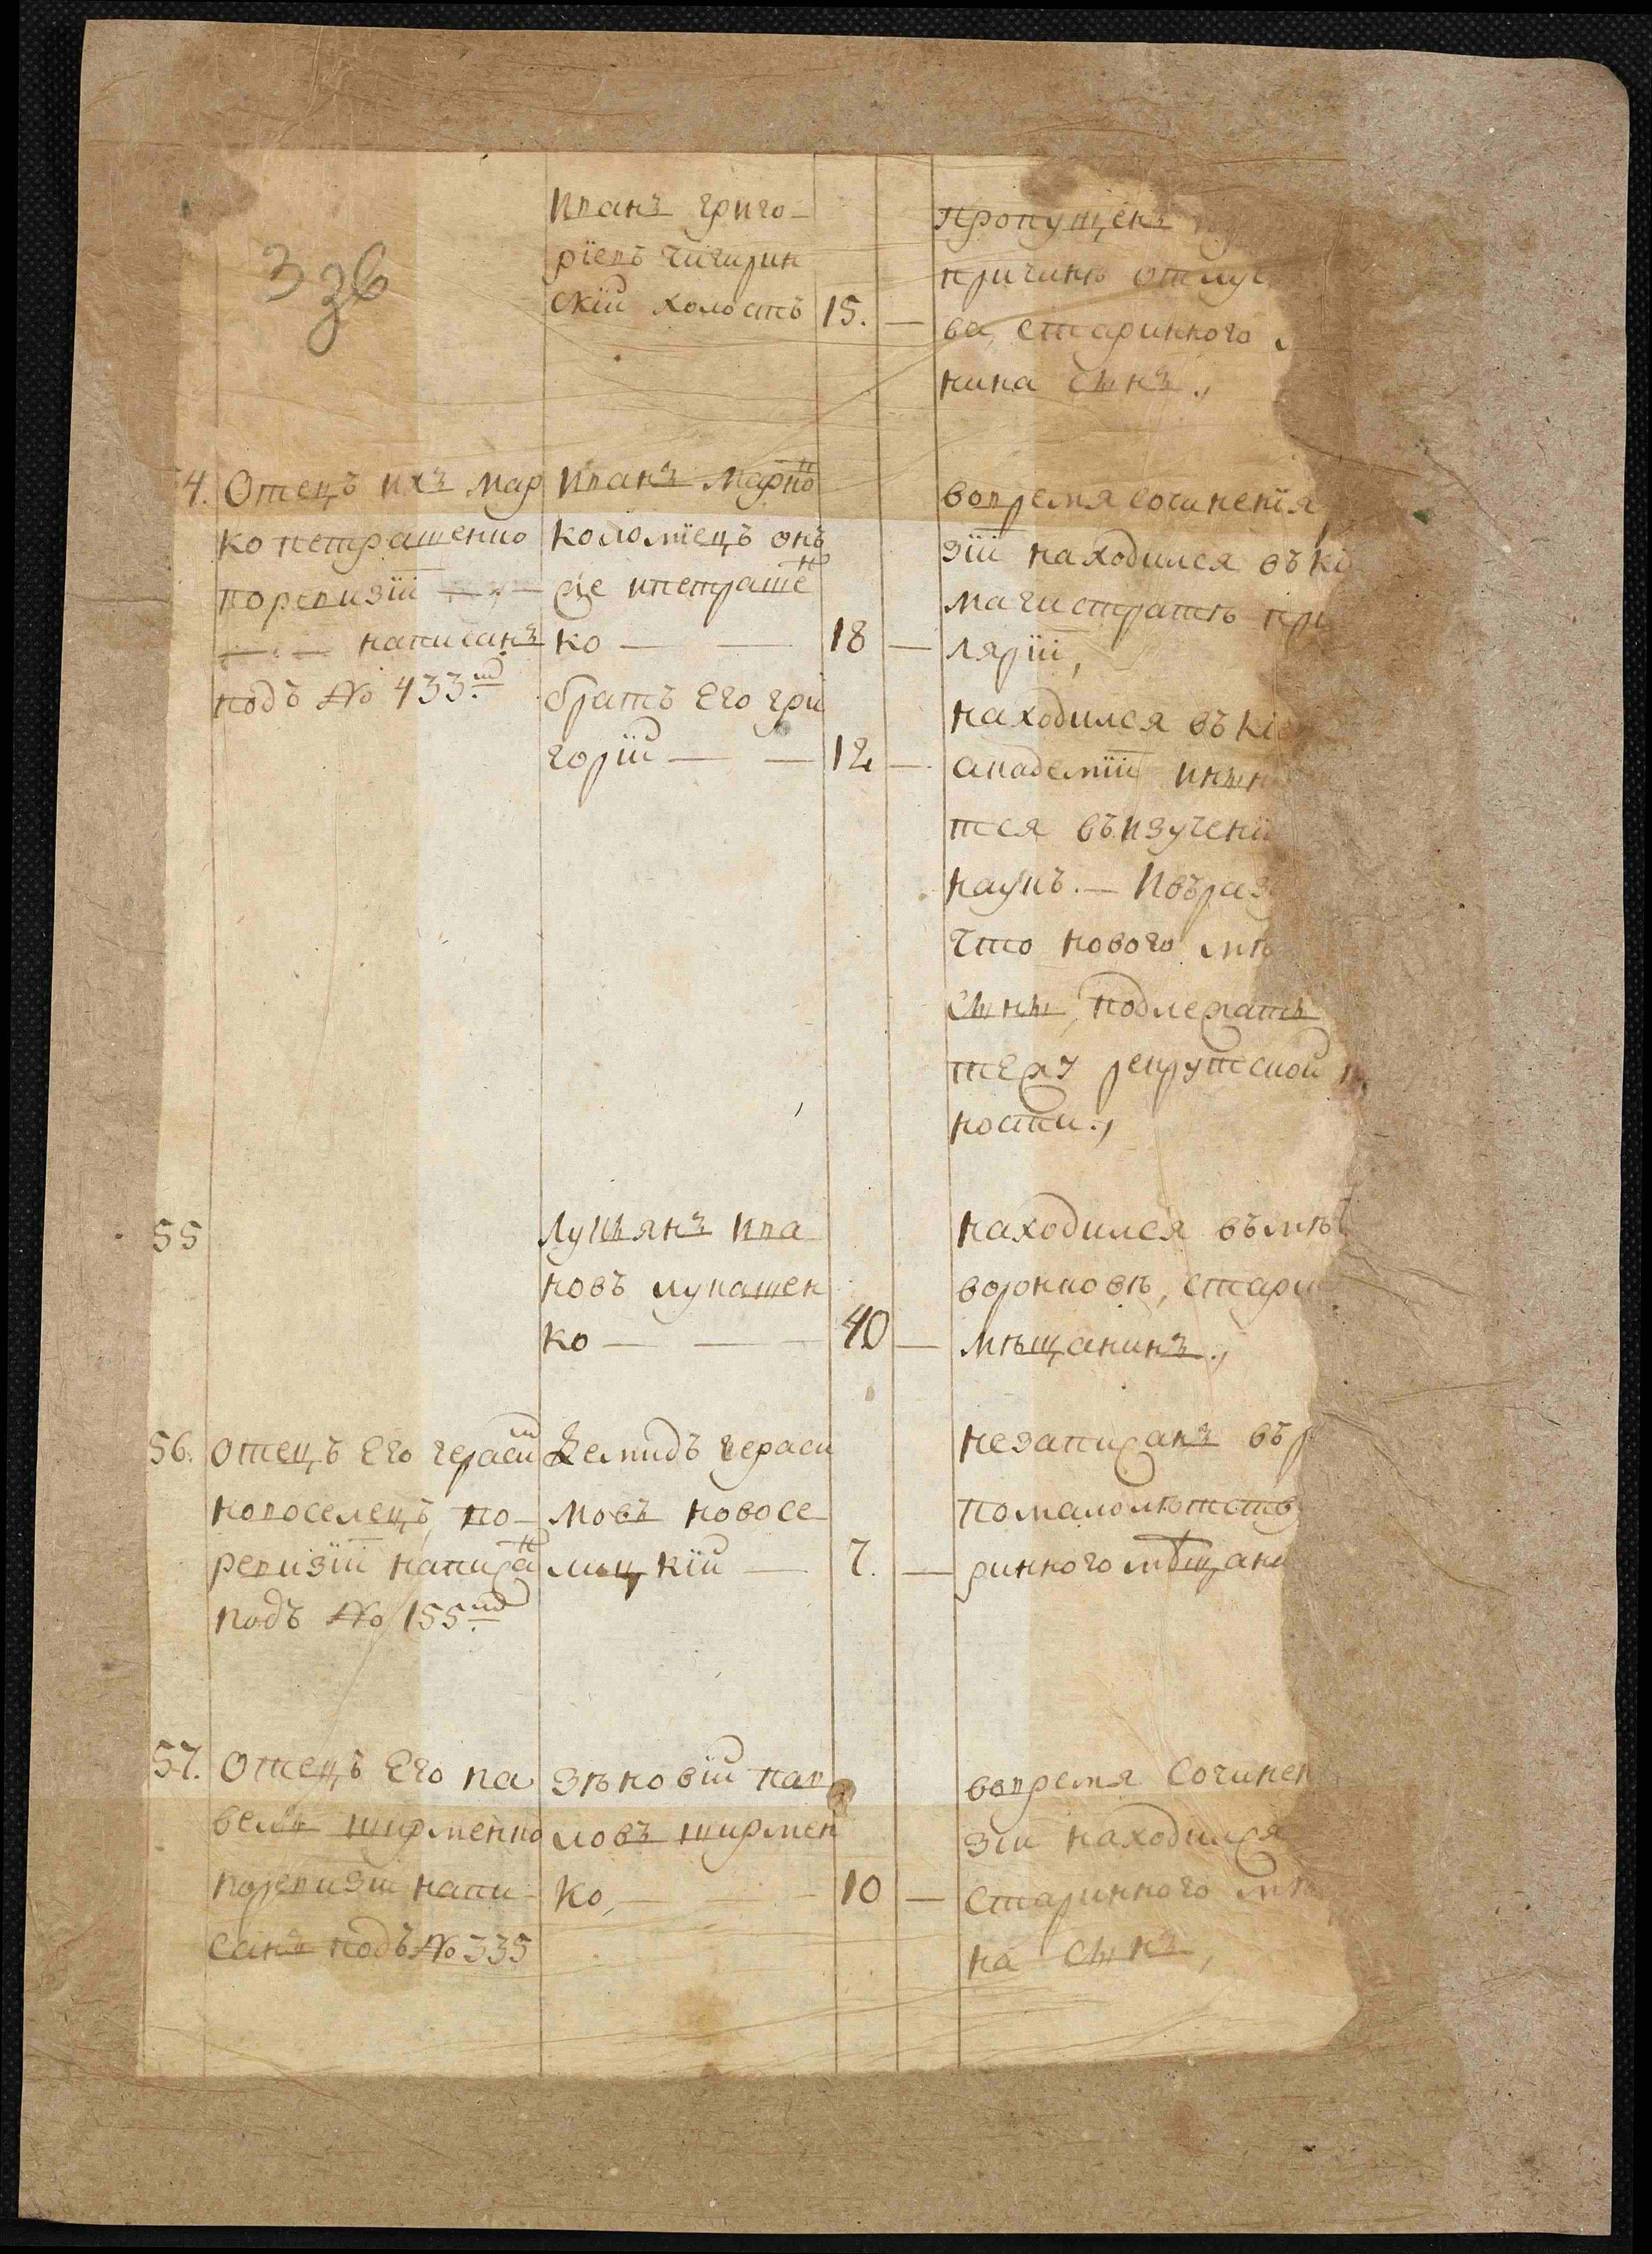 Иванъ Григо-
рїевъ Чигирин
скїй холостъ 15. —
Пропущенъ
причинѣ отлуч
ва, стариннога
нина сынъ.,
4. Отецъ ихъ Мар
ко Петрашенко
поревизїй
написанъ
подъ № 433й
Иванъ Марко
Коломїецъ онъ
же ипетрашен
ко — — 18 —
братъ Его Гри
горїй — — 12 —
вовремя сочиненїя
зїй находился въ Кі
магистратѣ при
лярїй,
находился въ Кіев
академїй инын
тся въизученїи
наукъ. — Ивъраз
что нового мѣ
сыны, подлежатъ
тежъ рекрутской
ности.,
55
Лукьянъ Ива
новъ Лукашен
ко — — 40 —
находился вьмѣ
воронковѣ, стари
мѣщанинъ.,
56. Отецъ Его Герасим
Новоселецъ, по-
ревизїй написан
подъ № 155й
Демидъ Гераси
мовъ Новосе
лицкїй — 7. —
незаписанъ въ р
помалолѣтств
ринного мѣщани
57. Отецъ Его Па
велъ Ширменко
поревизїй напи-
санъ подъ № 335
Зѣновїй Пав
ловъ Ширмен
ко, — — 10 —
вовремя Сочинен
зїй находился
Старинного мѣ
на Сынъ,